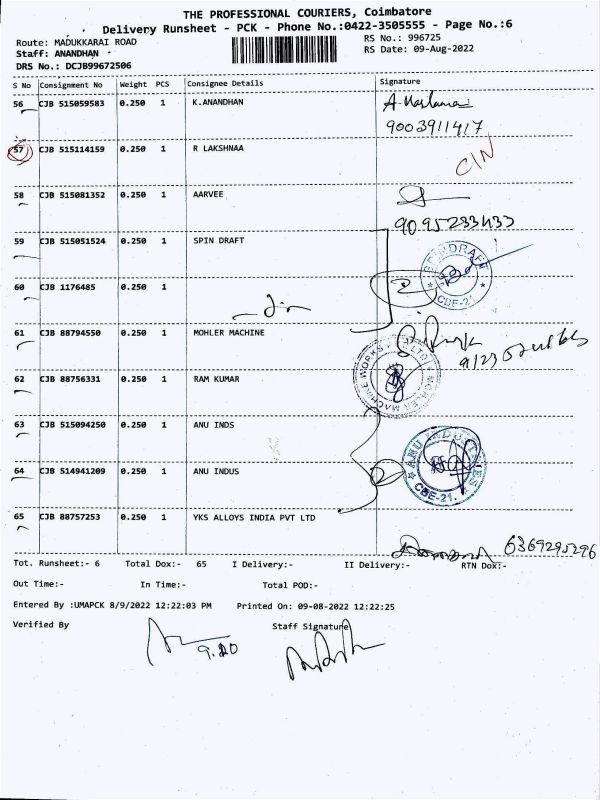 THE PROFESSIONAL COURIERS, Coimbatore
Delivery Runsheet - PCK - Phone No.:0422-3505555 - Page No.:6
Route: MADUKKARAI ROAD
RS No.: 996725
Staff: ANANDHAN
RS Date: 09-Aug-2022
DRS No.: DCJB99672506
S No Consignment No Weight PCS Consignee Details Signature
56 CJB 515059583 0.250 1 K.ANANDHAN
9003911417
57 CJB 515114159 0.250 1 R LAKSHNAA CIN
58 CJB 515081352 0.250 1 AARVEE
9095233433
59 CJB 515051524 0.250 1 SPIN DRAFT
SPIN DRAFT CBE-21
60 CJB 1176485 0.250 1
61 CJB 88794550 0.250 1 MOHLER MACHINE
MOHLER MACHINE WORKS
62 CJB 88756331 0.250 1 RAM KUMAR
63 CJB 515094250 0.250 1 ANU INDS
ANU INDUSTRIES CBE-21.
64 CJB 514941209 0.250 1 ANU INDUS
65 CJB 88757253 0.250 1 YKS ALLOYS INDIA PVT LTD
6369295296
Tot. Runsheet:- 6 Total Dox:- 65 I Delivery:- II Delivery:- RTN Dox:-
Out Time:- In Time:- Total POD:-
Entered By :UMAPCK 8/9/2022 12:22:03 PM Printed On: 09-08-2022 12:22:25
Verified By Staff Signature
9.20